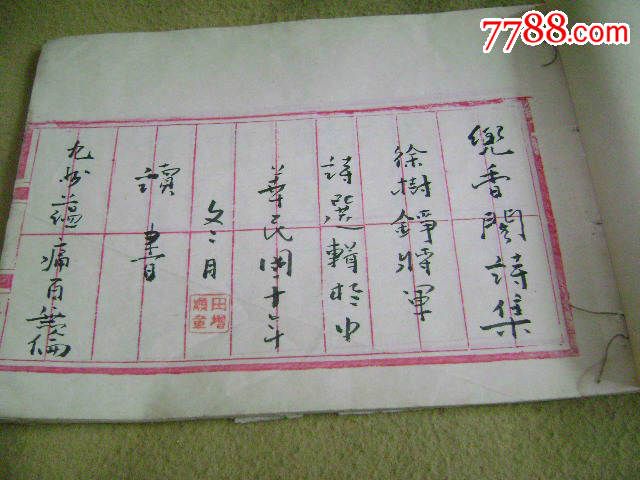 7788.com
兜香閣詩集
徐樹錚將軍
詩選輯於中
華民國十年
月
田增
讀書
九州蘊痛百無倫